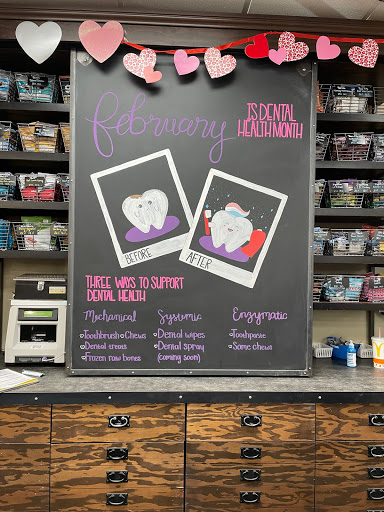 february
IS DENTAL
HEALTH MONTH
BEFORE
AFTER
THREE WAYS TO SUPPORT
DENTAL HEALTH
Mechanical
Toothbrush Chews
Dental treats
Frozen raw bones
Systemic
Dental wipes
Dental spray
(coming soon)
Enzymatic
Toothpaste
Some chews